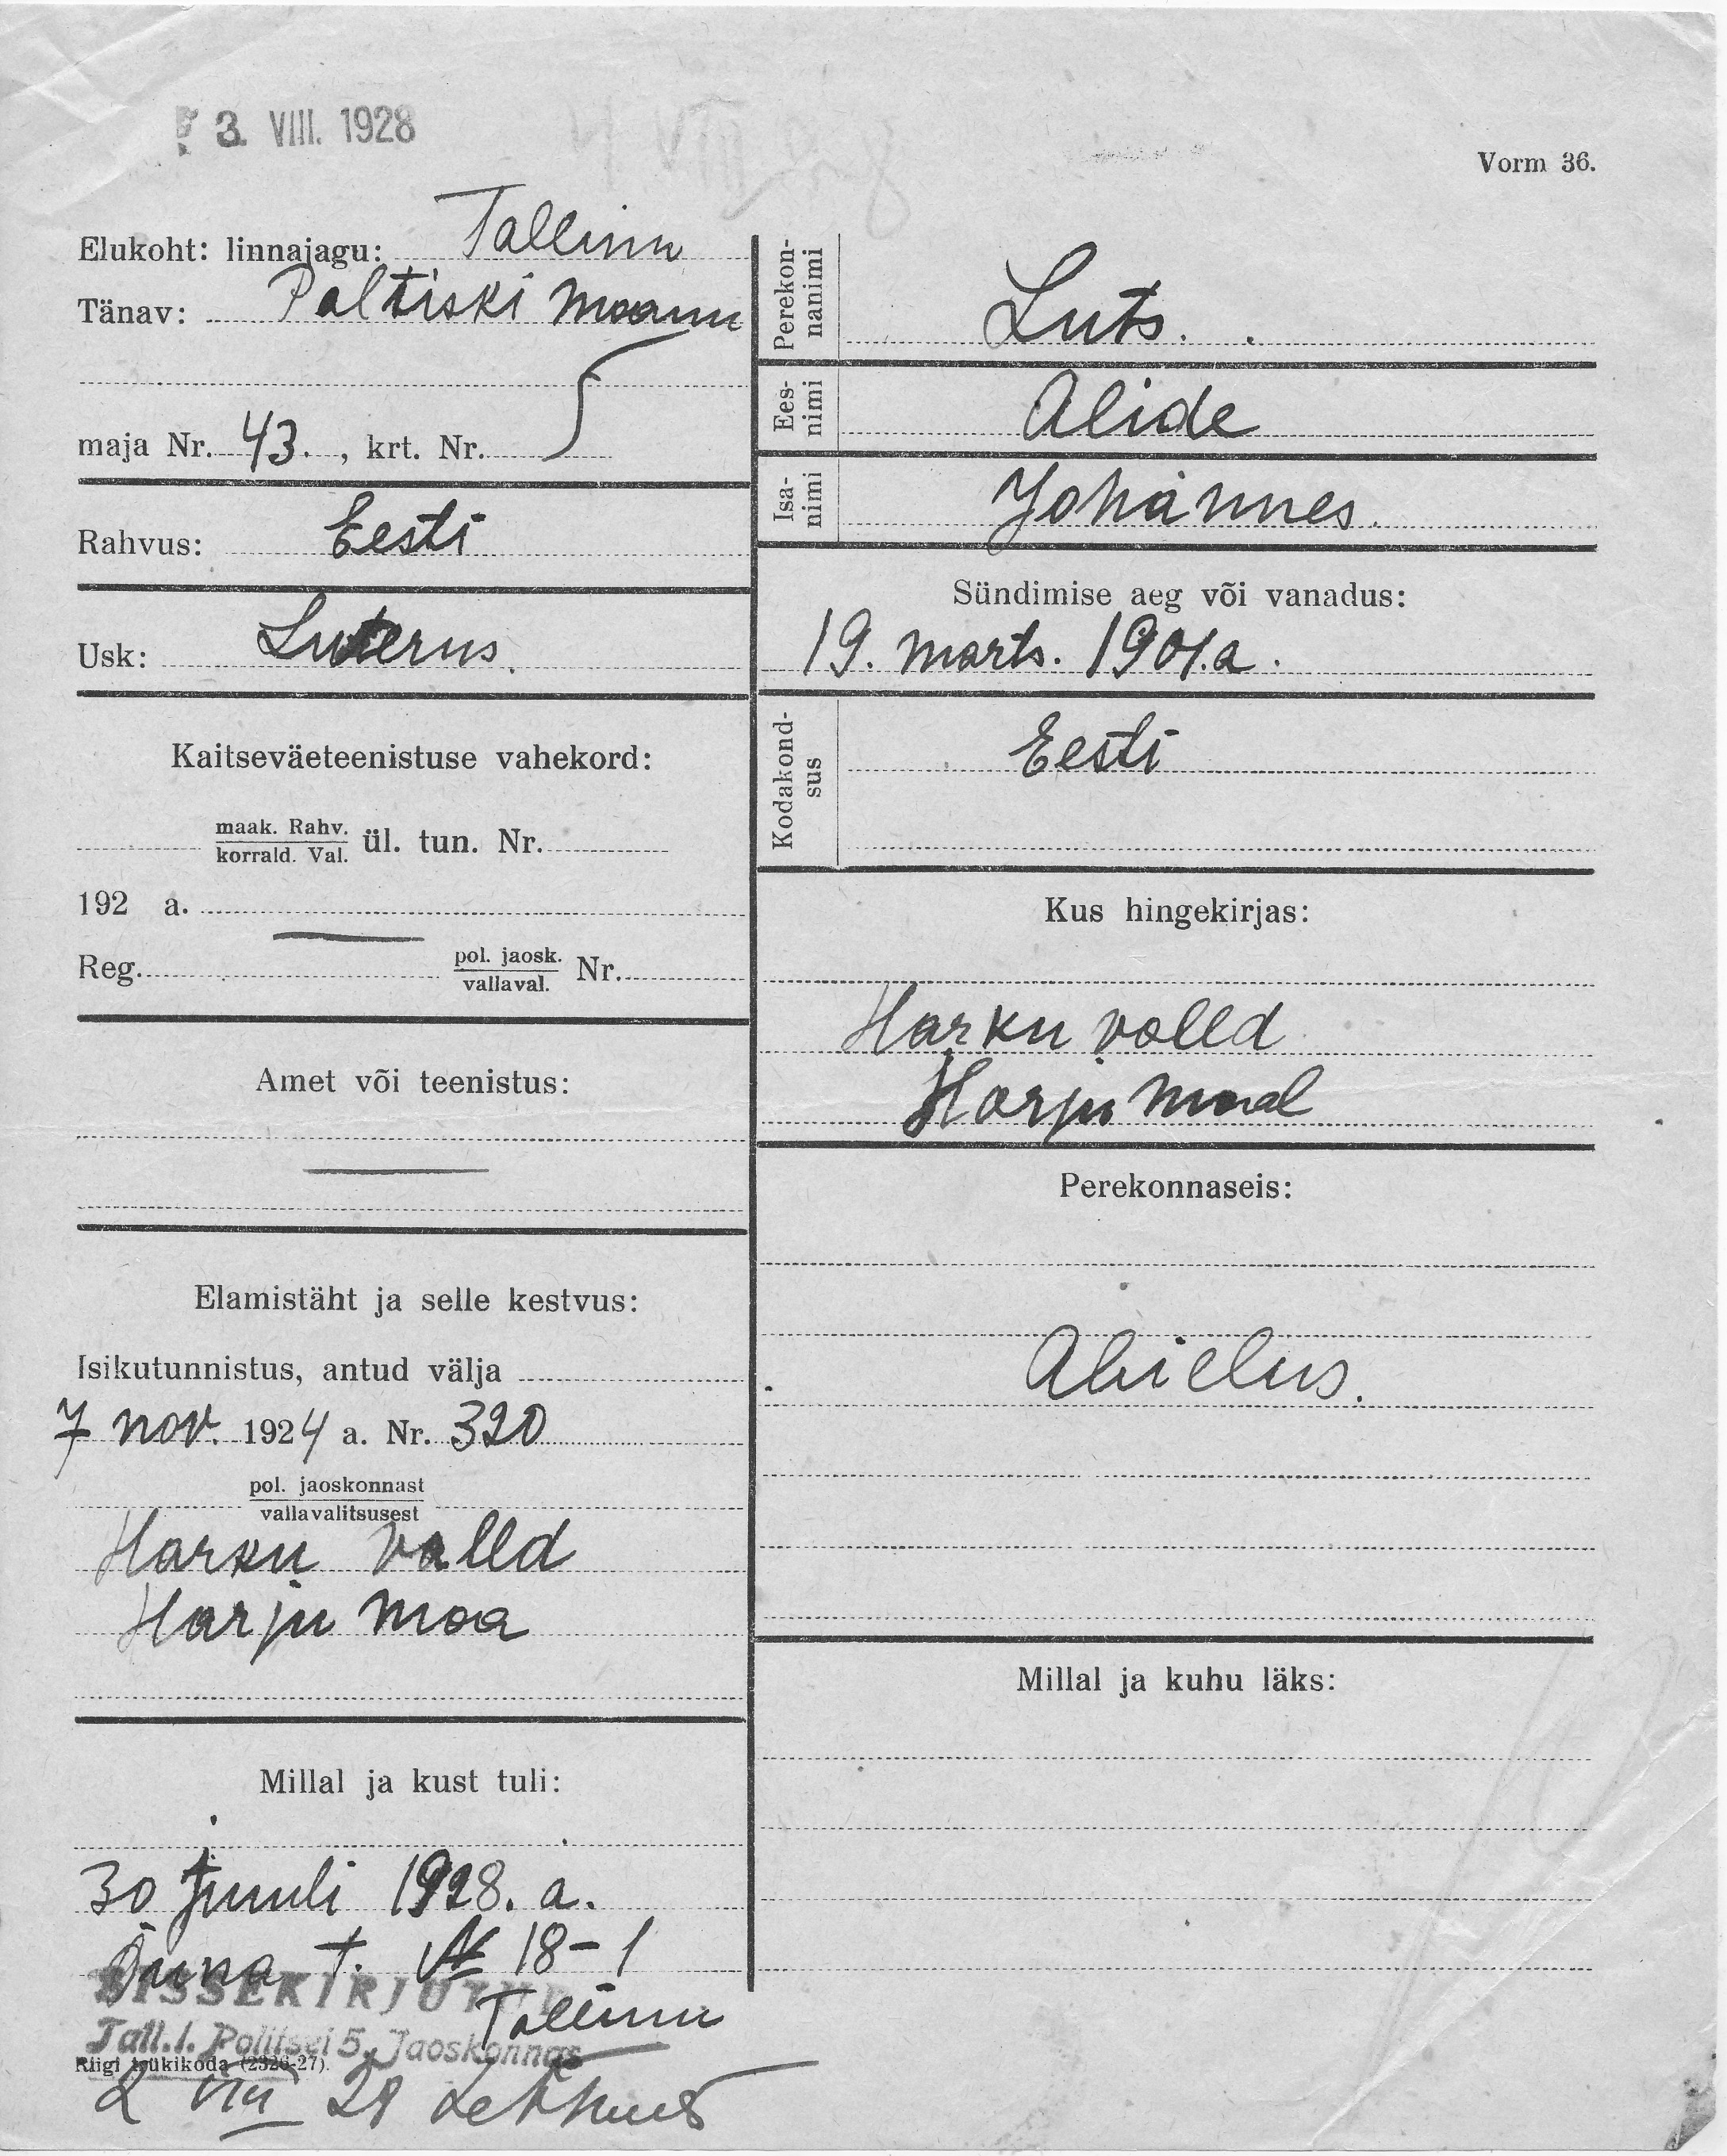 3. VIII. 1928
Vorm 36.
Elukoht: linnajagu: Tallinn
Tänav: Paltiski maann
maja Nr. 43. , krt. Nr. 5
Rahvus: Eesti
Usk: Luterus.
Kaitseväeteenistuse vahekord:
maak. Rahv.
korrald. Val. ül. tun. Nr.
192 a.
Reg. pol. jaosk.
vallaval. Nr.
Amet või teenistus:
Elamistäht ja selle kestvus:
Isikutunnistus, antud välja
7 nov. 1924 a. Nr. 320
pol. jaoskonnast
vallavalitsusest
Harku valld
Harju maa
Millal ja kust tuli:
30 Juuli 1928. a.
Õuna t. № 18-1
Tallinn
SISSEKIRJUTUD
Tall.l. Politsei 5. Jaoskonnas
Riigi trükikoda (2326-27).
2 VIII 28
Perekon-
nanimi
Luts.
Ees-
nimi
Alide
Isa-
nimi
Johannes.
Sündimise aeg või vanadus:
19. marts. 1901.a.
Kodakond-
sus
Eesti
Kus hingekirjas:
Harku valld
Harju maal
Perekonnaseis:
Abielus.
Millal ja kuhu läks: